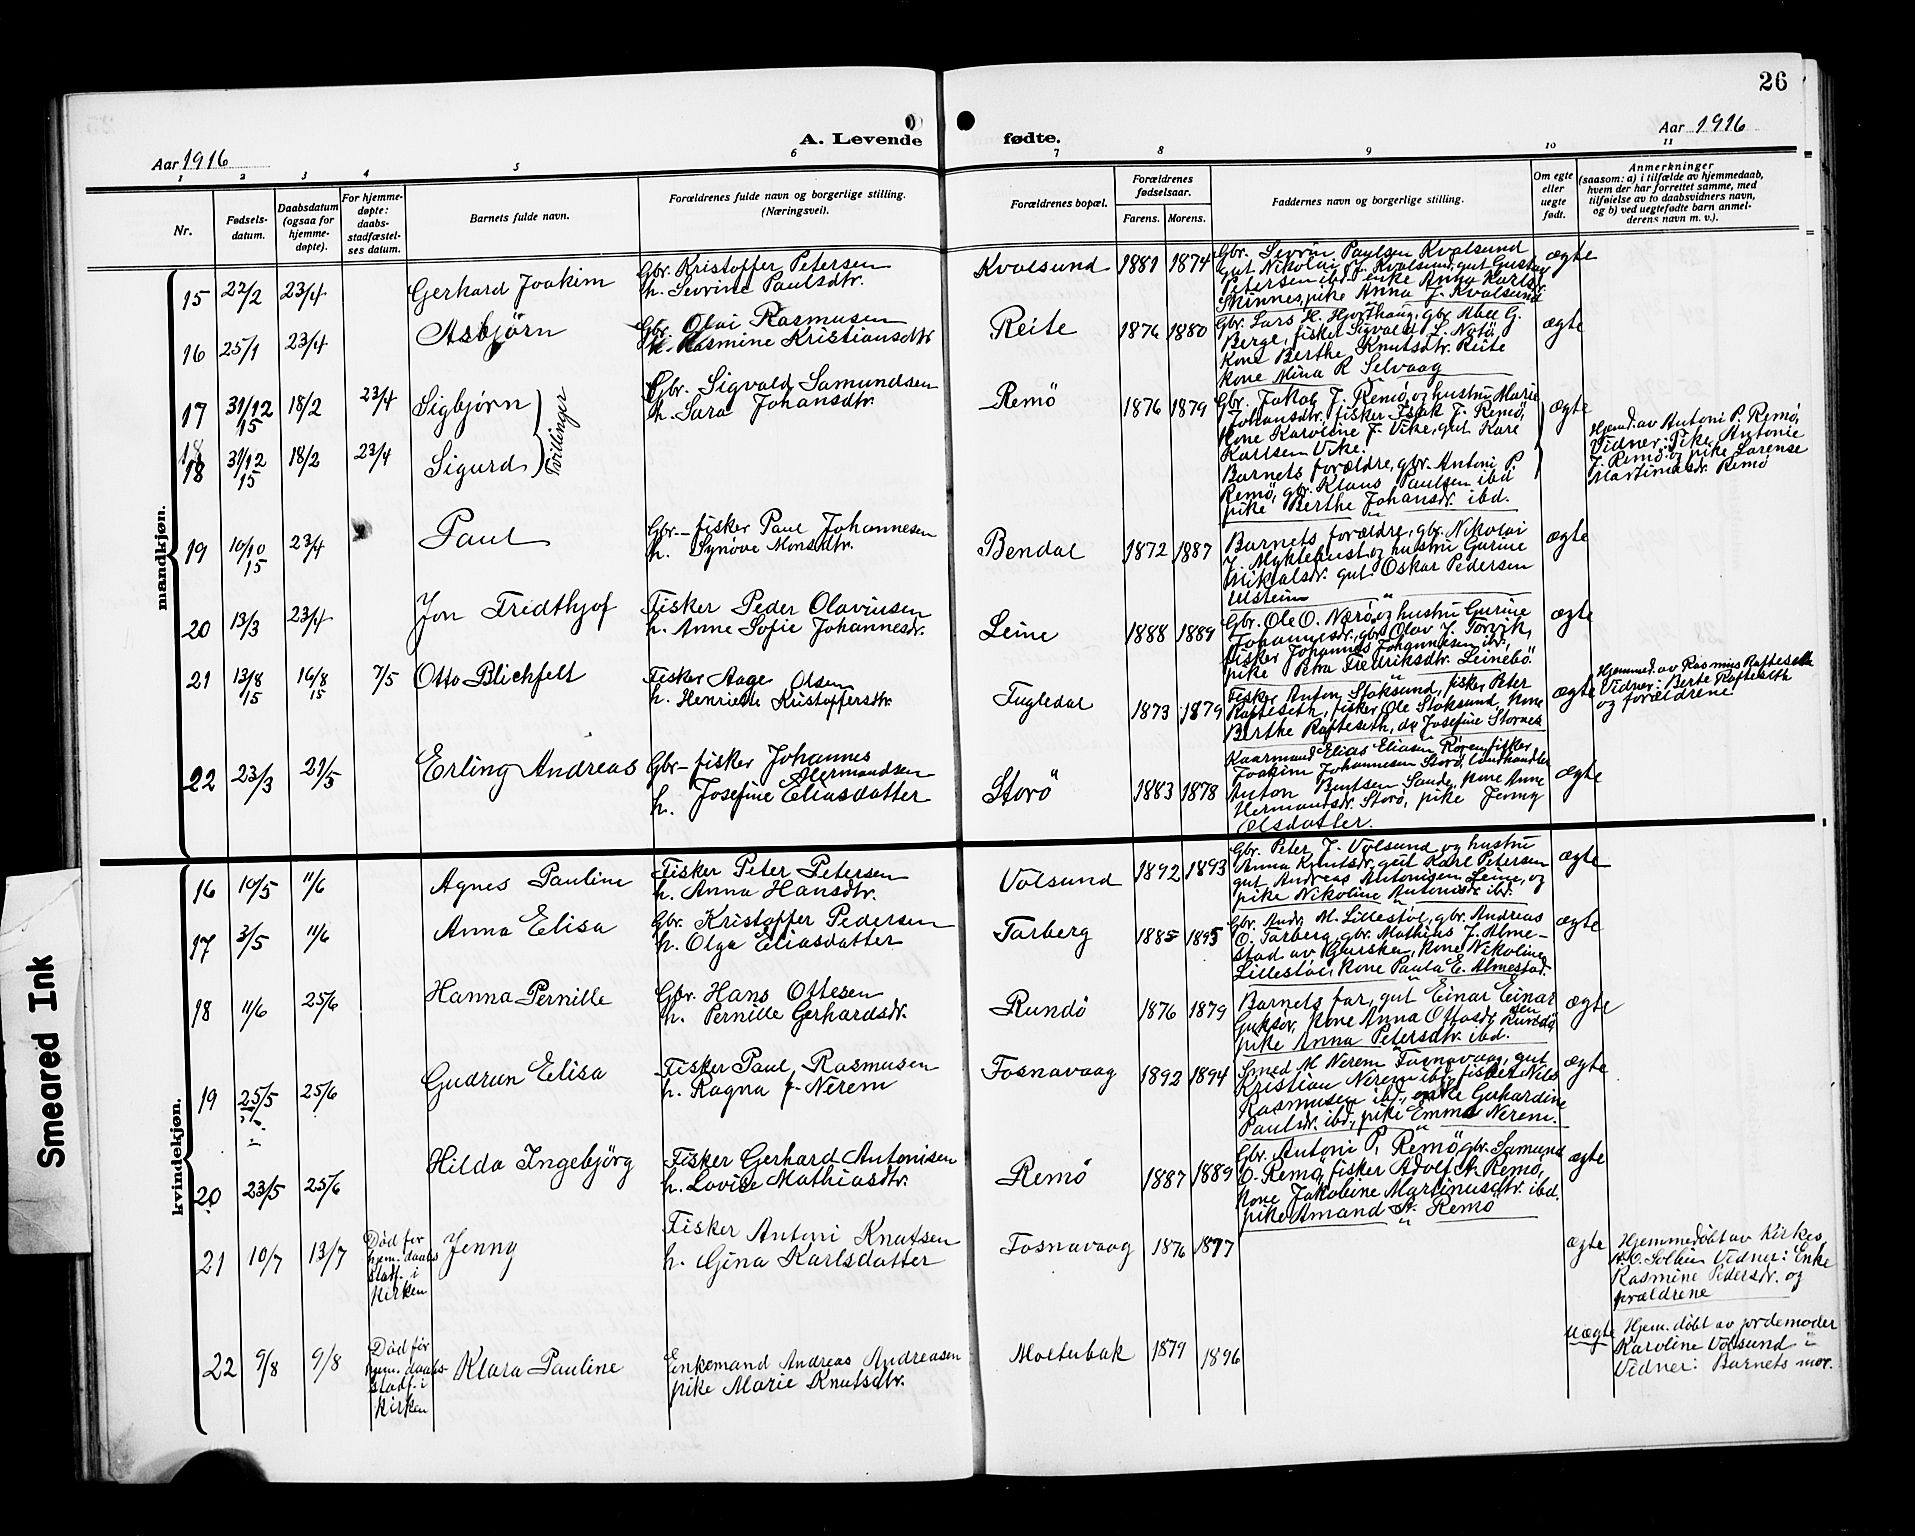 26
A. Levende fødte.
Aar 1916
Aar 1916
1 2 3 4 5 6 7 8 9 10 11
Nr.
Fødsels-
datum.
Daabsdatum
(ogsaa for
hjemme-
døpte).
For hjemme-
døpte:
daabs-
stadfæstel-
ses datum.
Barnets fulde navn.
Forældrenes fulde navn og borgerlige stilling.
(Næringsvei).
Forældrenes bopæl.
Forældrenes
fødselsaar.
Farens. Morens.
Faddernes navn og borgerlige stilling.
Om egte
eller
uegte
født.
Anmerkninger
(saasom: a) i tilfælde av hjemmedaab,
hvem der har forrettet samme, med
tilføielse av to daabsvidners navn,
og b) ved uegtefødte barn anmel-
derens navn m. v.).
mandkjøn.
15 22/2 23/4 Gerhard Joakim
Gbr. Kristoffer Petersen
h. Sevrine Paulsdtr.
Kvalsund 1881 1874
Gbr. Sevrin Paulsen Kvalsund
gut Nikolai J. Kvalsund, gut Gustav
Petersen ibd. enke Anna Karlsdr.
Skinnes, pike Anna J. Kvalsund
ægte
16 25/1 23/4 Asbjørn
Gbr. Olai Rasmusen
h. Rasmine Kristiansdtr
Reite 1876 1880
Gbr. Lars H. Hjorthaug, gbr Abel G.
Berge, fisker Sigvald L. Notö,
kone Berthe Knutsdtr. Reite
kone Mina R Selvaag
ægte
17 31/12 15 18/2 23/4 Sigbjørn
Tvillinger
Gbr. Sigvald Samundsen
h. Sara Johansdtr.
Remö 1876 1879
Gbr. Jakob J. Remö, og hustru Marie
Johansdtr, fisker Isak J. Remö,
kone Karoline J. Vike, gut Kare
Karlsen Vike.
ægte
18 31/12 15 18/2 23/4 Sigurd
Barnets forældre, gbr. Antoni P.
Remö, gbr. Klaus Paulsen ibd
pike Berthe Johansdr. ibd.
Hjemd. av Antoni P. Remö,
Vidner: Pike Antonie
J. Remö og pike Larense
Martinusdr. Remö
19 10/10 15 23/4 Paul
Gbr.- fisker Paul Johannesen
h. Synöve Monsdtr.
Bendal 1872 1887
Barnets forældre, gbr. Nikolai
J. Myklebust og hustru Gurine
Nikolalsdr. gut Oskar Pedersen
Ulstein
ægte
20 13/3 23/4 Jon Fridthjof
Fisker Peder Olavinsen
h. Anne Sofie Johannesdr.
Leine 1888 1889
Gbr. Ole O. Nærö, og hustru Gurine
Johannesdr., gbr. Olav J. Torvik,
fisker Johannes Johannesen ibd.,
pike Petra Fredriksdtr. Leinebö.
ægte
21 13/8 15 16/8 15 7/5 Otto Blichfelt
Fisker Aage Olsen
h. Henriette Kristoffersdtr.
Fugledal 1873 1879
Fisker Anton Stoksund, fisker Peter
Rafteseth, fisker Ole Stoksund, kone
Berthe Rafteseth, do Josefine Stornes
ægte
Hjemmed. av Rasmus Rafteseth
Vidner: Berte Rafteseth
og forældrene
22 23/3 21/5 Erling Andreas
Gbr- fisker Johannes
Hermandsen
h. Josefine Eliasdatter
Storö 1883 1878
Kaarmand Elias Eliasen Kören, fisker
Joakim Johannesen Storö, landhandler
Anton Bentsen Sande, kone Anne
Hermandsdr. Storö, pike Jenny
Olsdatter.
ægte
kvindekjøn.
16 10/5 11/6 Agnes Pauline
Fisker Peter Petersen
h. Anna Hansdtr.
Volsund 1892 1893
Gbr. Peter J. Volsund og hustru
Anna Knutsdr. gut Karl Petersen
gut Andreas Antonisen Leine, og
pike Nikoline Antonisdr. ibd.
ægte
17 3/5 11/6 Anna Elisa
Gbr. Kristoffer Pedersen
h. Olga Eliasdatter
Tarberg 1885 1895
Gbr. Andr. M. Lillestöl, gbr. Andreas
O. Tarberg, gbr. Mathias J. Alme-
stad av Gursken, kone Nikoline
Lillestöl, kone Paula E. Almestad.
ægte
18 11/6 25/6 Hanna Pernille
Gbr. Hans Ottesen
h. Pernille Gerhardsdr.
Rundö 1876 1879
Barnets far, gut Einar Einar
sen
Goksör, kone Anna Ottosdr Rundö
pike Anna Petersdtr. ibd.
ægte
19 25/5 25/6 Gudrun Elisa
Fisker Paul Rasmusen
h. Ragna f. Nerem
Fosnavaag 1892 1894
Smed M Nerem Fosnavaag, gut
Kristian Nerem ibd, fisker Nils
Rasmusen ibd., enke Gerhardine
Paulsdr. ibd., pike Emma Nerem.
ægte
20 23/5 25/6 Hilda Ingebjörg
Fisker Gerhard Antonisen
h. Lovise Mathiasdtr.
Remö 1887 1889
Gbr. Antoni P. Remö, gbr. Samund
O. Remö, fisker Adolf A. Remö,
kone Jakobine Martinusdtr. ibd.
pike Amand A. Remö
ægte
21 10/7 13/7
Död før
hjem. daabs
stadf. i
Kirken
Jenny
Fisker Antoni Knutsen
h. Gina Karlsdatter
Fosnavaag 1876 1877
ægte
Hjemmedöbt av Kirkes.
Vidner: Enke
Rasmine Pedersdr. og
forældrene
22 9/8 9/8
Död før
hjem. daabs-
stadf. i
Kirken
Klara Pauline
Enkemand Andreas Andreasen
pike Marie Knutsdtr.
Molterbak 1879 1896
uægte
Hjem. döbt av jordemoder
Karoline Volsund
Vidner: Barnets mor.
Smeared Ink